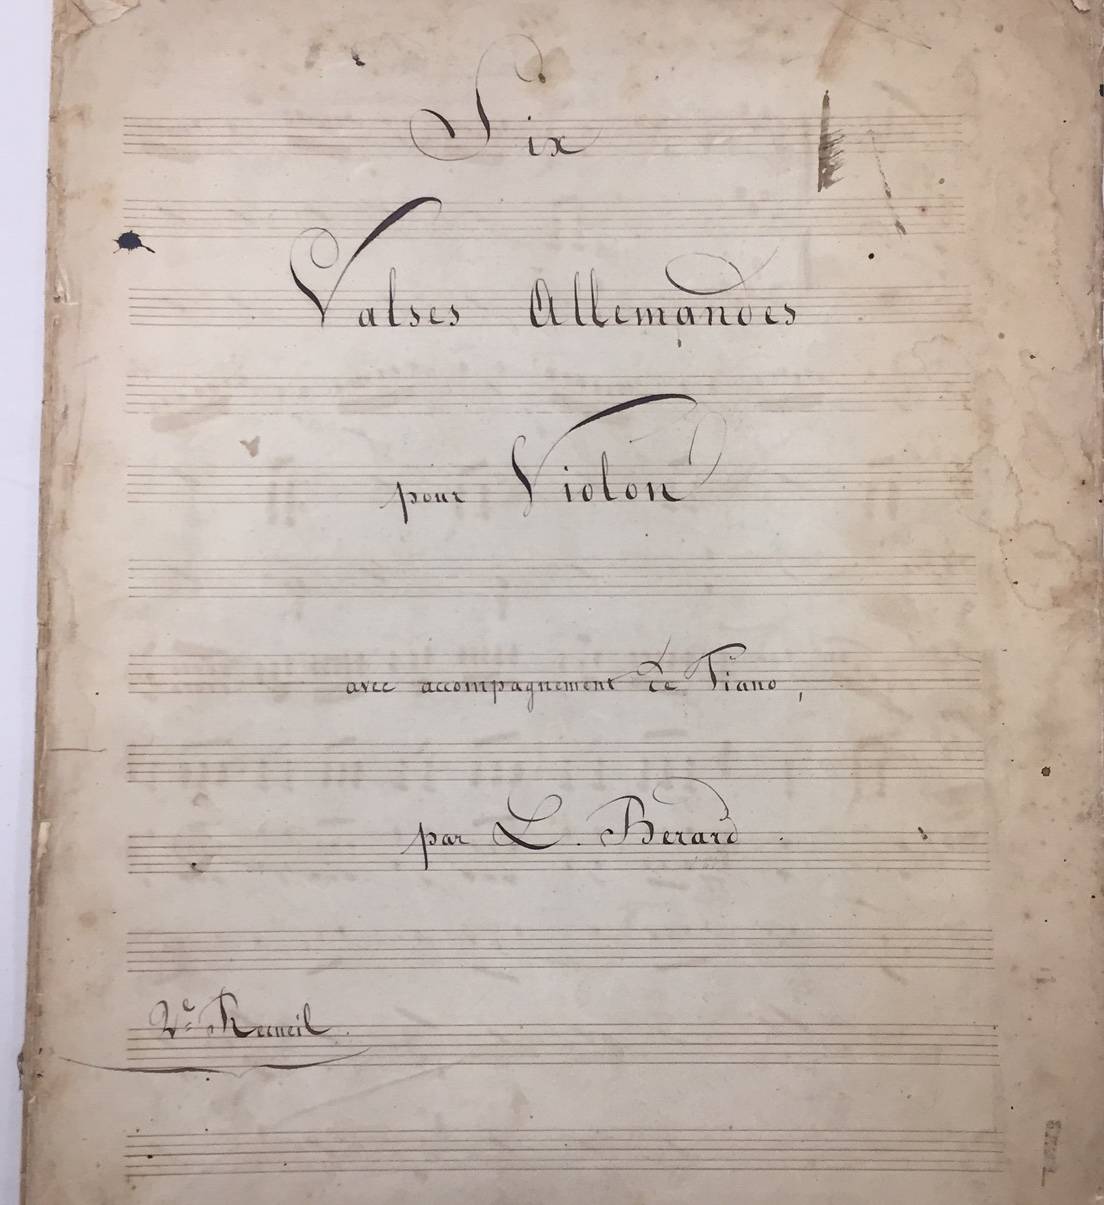 Six
Valses Allemandes
pour Violon
avec accompagnement de Piano,
par L. Berard.
2e Recueil.